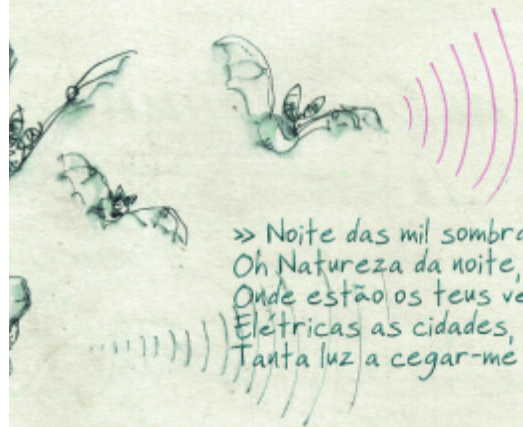 >> Noite das mil sombra
Oh Natureza da noite,
Onde estão os teus ve
Elétricas as cidades,
Tanta luz a cegar-me